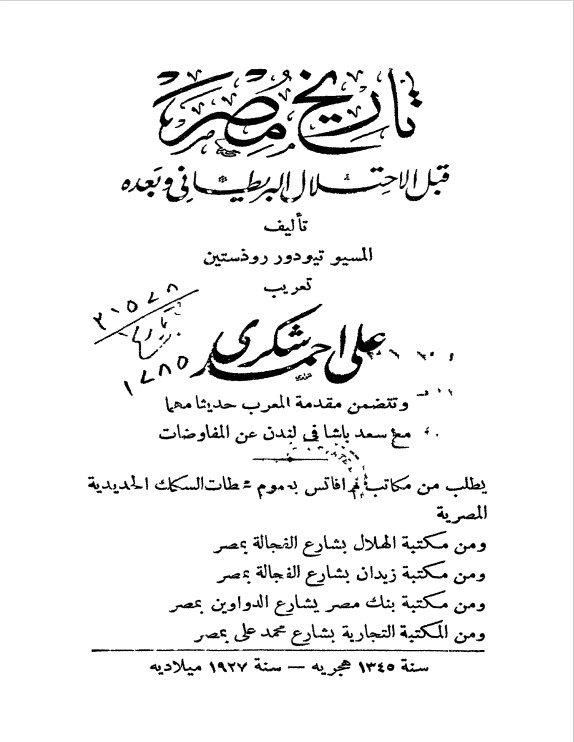 تاريخ مصر
قبل الاحتلال البريطاني وبعده
تأليف
المسيو تيودور روذستين
تعريب
٢١٥٧٨
تاريخ
١٢٨٥
على احمد شكرى
وتتضمن مقدمة المعرب حديثا مهما
مع سعد باشا في لندن عن المفاوضات
يطلب من مكاتب فرافاتس بعموم محطات السكك الحديدية
المصرية
ومن مكتبة الهلال بشارع الفجالة بمصر
ومن مكتبة زيدان بشارع الفجالة بمصر
ومن مكتبة بنك مصر يشارع الدواوين بمصر
ومن المكتبة التجارية بشارع محمد على بمصر
سنة ١٣٤٥ هجريه — سنة ١٩٢٧ ميلاديه